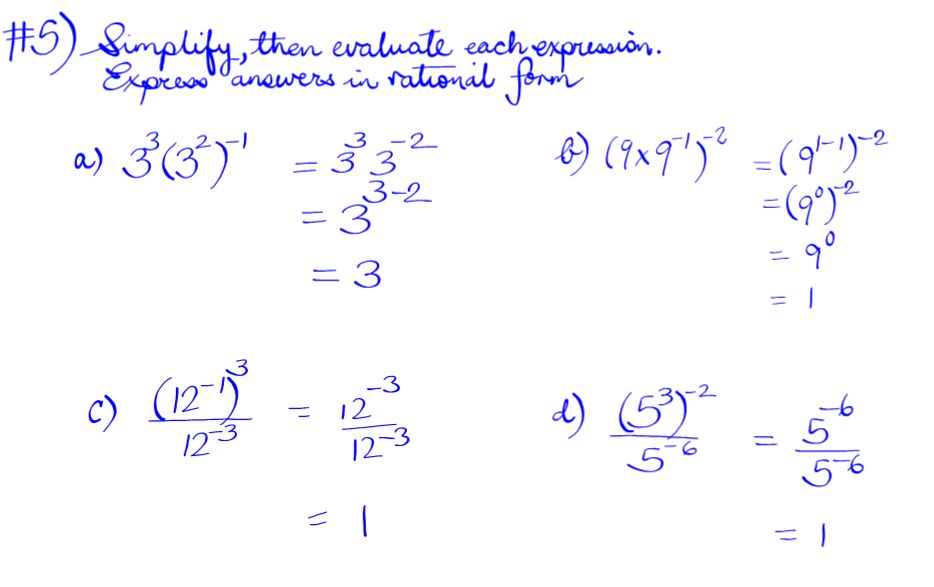 #5) Simplify, then evaluate each expression.
Express answers in rational form
a) 3³(3²)⁻¹ = 3³3⁻²
= 3³⁻²
= 3
b) (9x9⁻¹)⁻² = (9¹⁻¹)⁻²
= (9⁰)⁻²
= 9⁰
= 1
c) (12⁻¹)³/12⁻³ = 12⁻³/12⁻³
= 1
d) (5³)⁻²/5⁻⁶ = 5⁻⁶/5⁻⁶
= 1